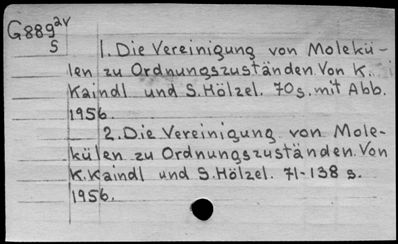 G889²ᵛ
S
1. Die Vereinigung von Molekü-
len zu Ordnungszuständen. Von K.
Kaindl und S. Hölzel. 70 s. mit Abb.
1956.
2. Die Vereinigung von Mole-
külen zu Ordnungszuständen. Von
K. Kaindl und S. Hölzel. 71-138 s.
1956.